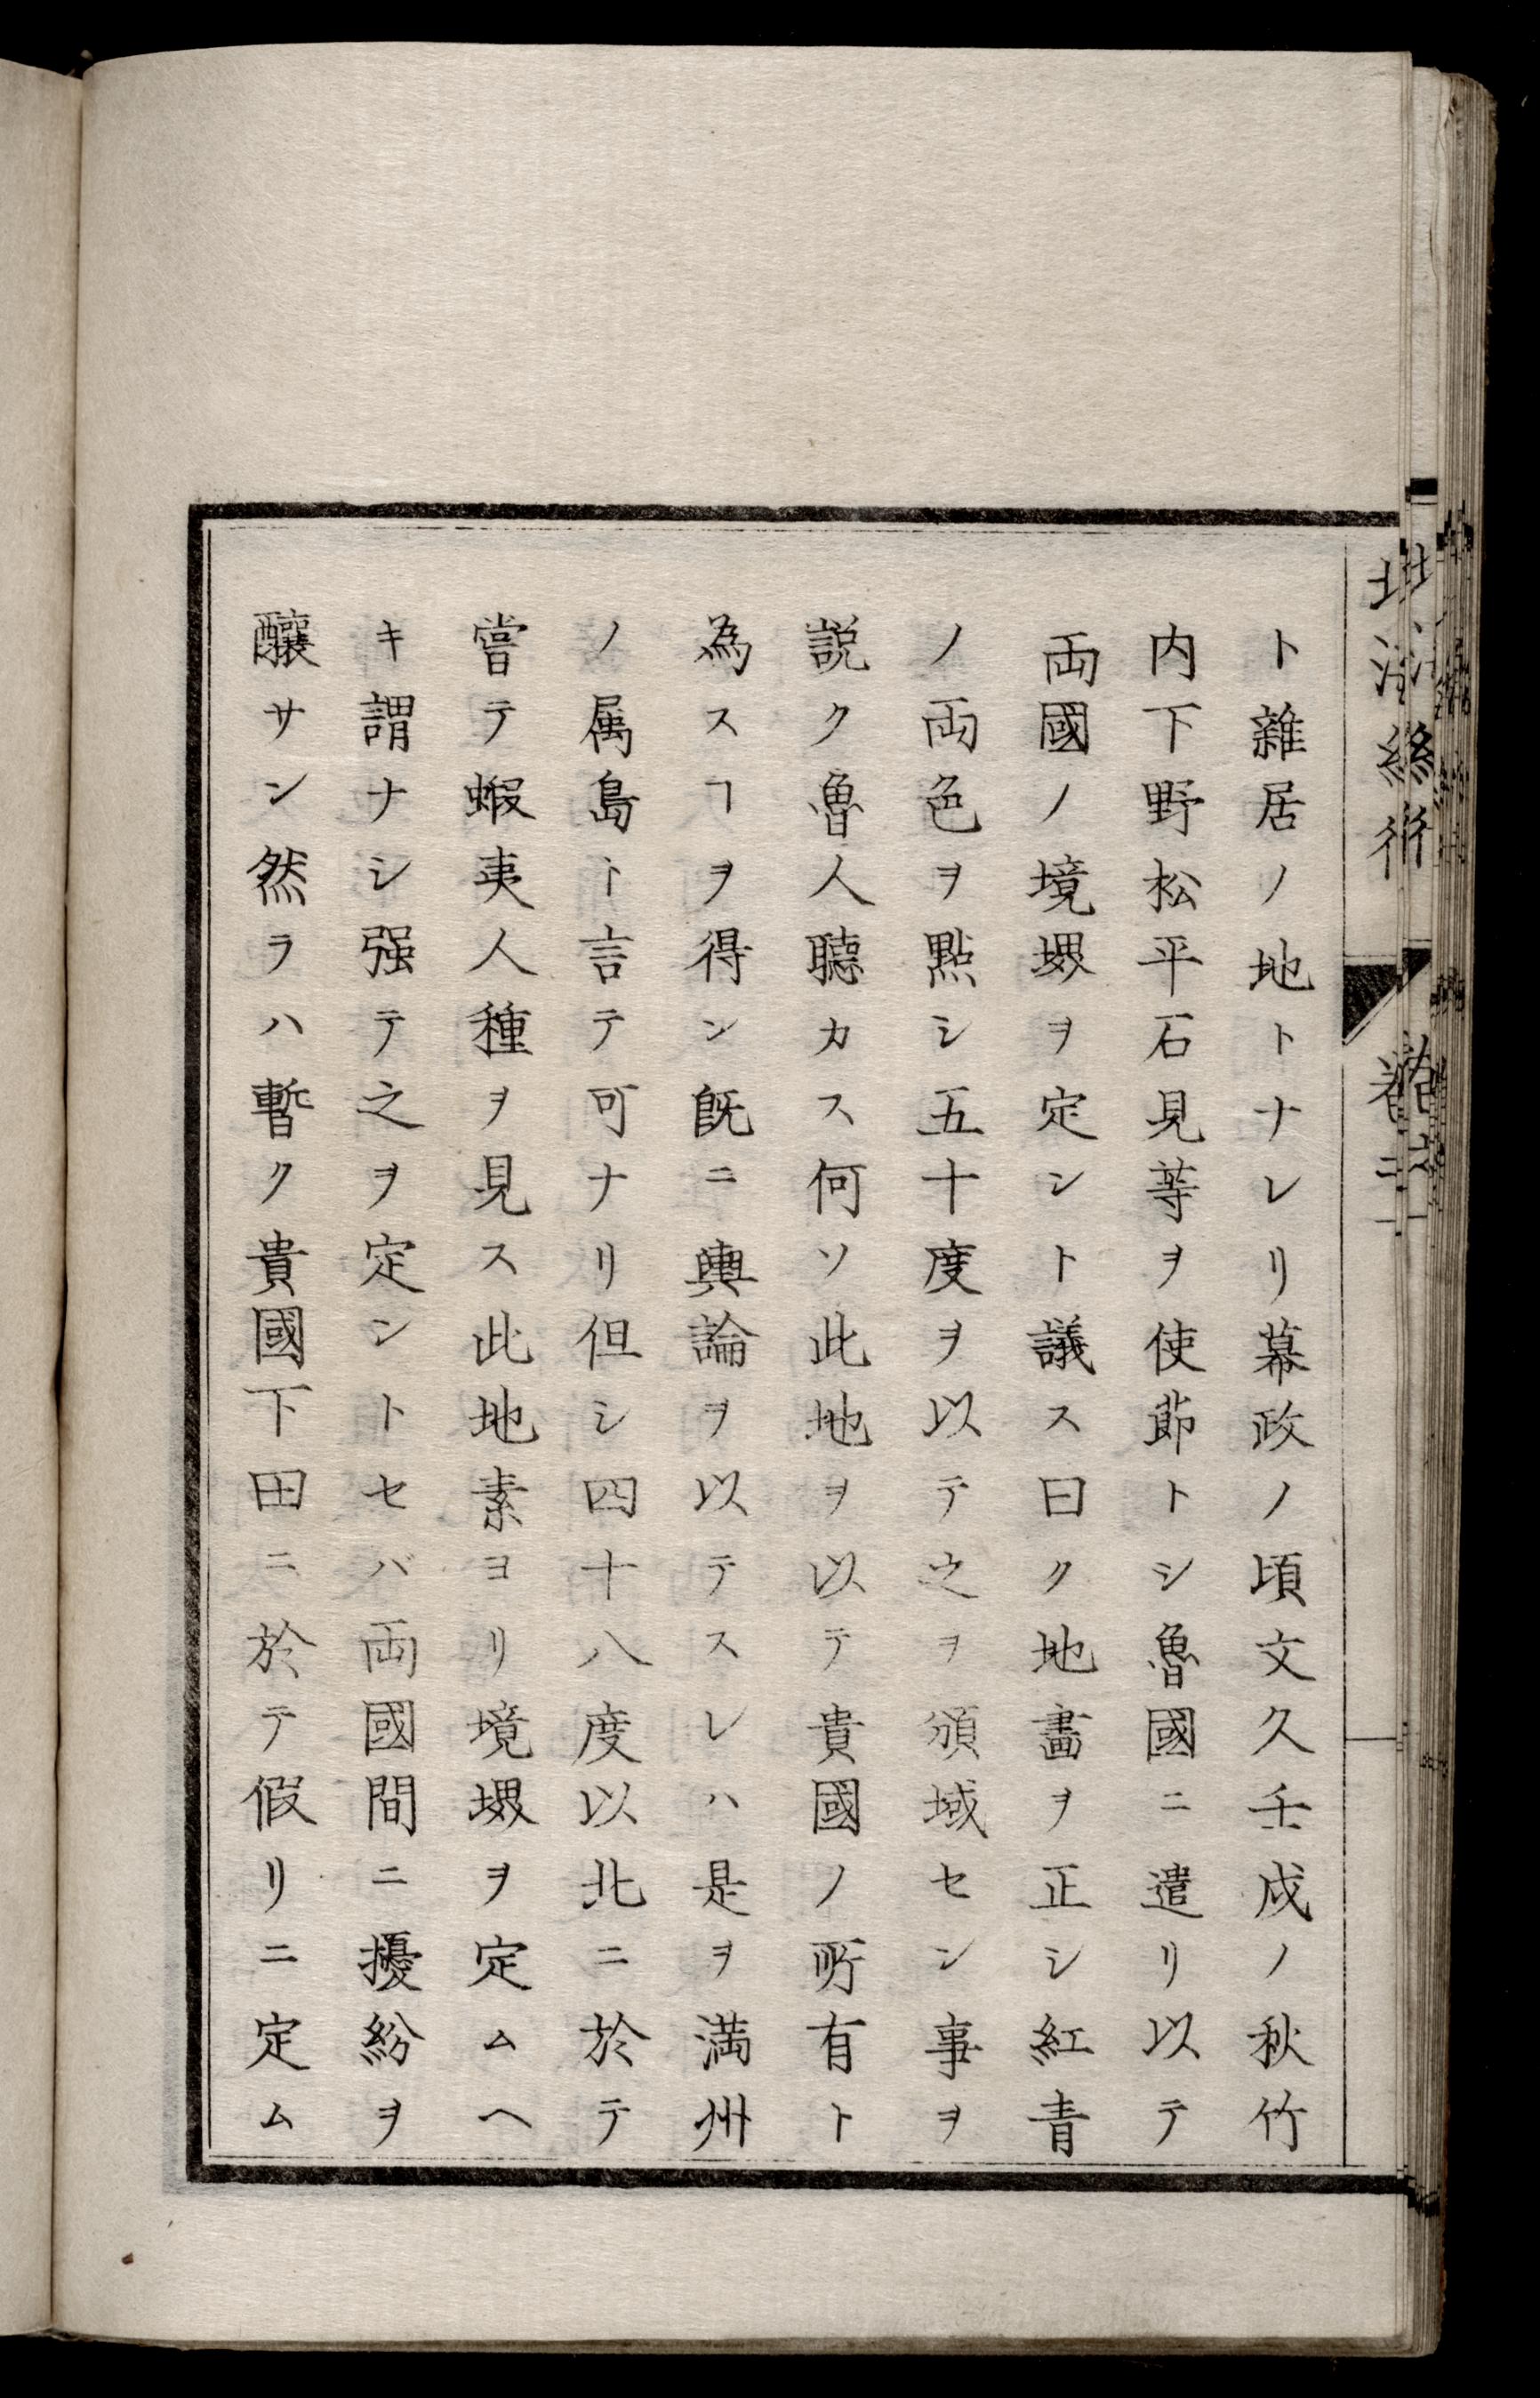 ト雜居ノ地トナレリ幕政ノ頃文久壬戌ノ秋竹
内下野松平石見等ヲ使節トシ魯國ニ遣リ以テ
両國ノ境堺ヲ定シト議ス曰ク地畵ヲ正シ紅青
ノ両色ヲ點シ五十度ヲ以テ之ヲ頒域セン事ヲ
説ク魯人聽カス何ソ此地ヲ以テ貴國ノ所有ト
為スヿヲ得ン既ニ輿論ヲ以テスレハ是ヲ満州
ノ属島ト言テ可ナリ但シ四十八度以北ニ於テ
嘗テ蝦夷人種ヲ見ス此地素ヨリ境堺ヲ定ムヘ
キ謂ナシ强テ之ヲ定ントセバ両國間ニ擾紛ヲ
釀サン然ラハ暫ク貴國下田ニ於テ假リニ定ム